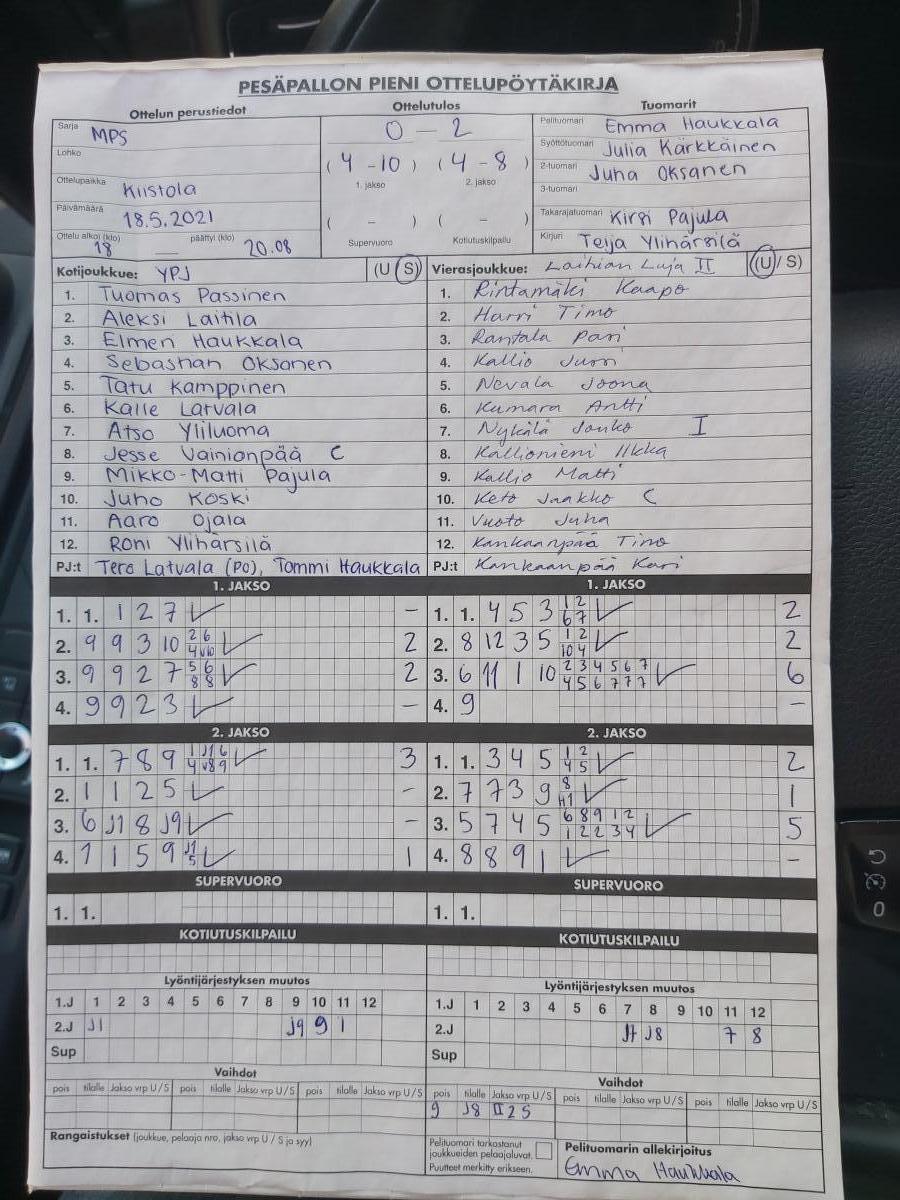 PESÄPALLON PIENI OTTELUPÖYTÄKIRJA
Ottelun perustiedot Ottelutulos Tuomarit
Sarja MPS
Lohko
Ottelupaikka Kiistola
Päivämäärä 18.5.2021
Ottelu alkoi (klo) 18 — päättyi (klo) 20.08
0 - 2
(4 - 10) (4 - 8)
1. jakso 2. jakso
( - ) ( - )
Supervuoro Kotiutuskilpailu
Pelituomari Emma Haukkala
Syöttötuomari Julia Kärkkäinen
2-tuomari Juha Oksanen
3-tuomari
Takarajatuomari Kirsi Pajula
Kirjuri Teija Ylihärsilä
Kotijoukkue: YPJ (U S)
1. Tuomas Passinen
2. Aleksi Laitila
3. Elmeri Haukkala
4. Sebastian Oksanen
5. Tatu Kamppinen
6. Kalle Latvala
7. Atso Yliluoma
8. Jesse Vainionpää C
9. Mikko-Matti Pajula
10. Juho Koski
11. Aaro Ojala
12. Roni Ylihärsilä
PJ:t Tero Latvala (PO), Tommi Haukkala
Vierasjoukkue: Laihian Luja II (U / S)
1. Rintamäki Kaapo
2. Harri Timo
3. Rantala Pasi
4. Kallio Jussi
5. Nevala Joona
6. Kumara Antti
7. Nykälä Jouko I
8. Kallioniemi Ilkka
9. Kallio Matti
10. Keto Jaakko C
11. Vuoto Juha
12. Kankaanpää Timo
PJ:t Kankaanpää Kari
1. JAKSO
1. 1. 1 2 7 –
2. 9 9 3 10 2 6 2
3. 9 9 2 7 5 6 8 8 2
4. 9 9 2 3 –
1. JAKSO
1. 1. 4 5 3 1 2 6 7 2
2. 8 12 3 5 1 2 10 4 2
3. 6 11 1 10 2 3 4 5 6 7 4 5 6 7 7 7 6
4. 9 –
2. JAKSO
1. 1. 7 8 9 1 J1 6 4 J8 9 3
2. 1 1 2 5 –
3. 6 J1 8 J9 –
4. 7 1 5 9 J1 5 1
2. JAKSO
1. 1. 3 4 5 1 2 4 5 2
2. 7 7 3 9 8 1
3. 5 7 4 5 6 8 9 1 2 1 2 2 3 4 5
4. 8 8 9 1 –
SUPERVUORO
1. 1.
SUPERVUORO
1. 1.
KOTIUTUSKILPAILU
KOTIUTUSKILPAILU
Lyöntijärjestyksen muutos
1.J 1 2 3 4 5 6 7 8 9 10 11 12
2.J J1 J9 9 1
Sup
Lyöntijärjestyksen muutos
1.J 1 2 3 4 5 6 7 8 9 10 11 12
2.J J7 J8 7 8
Sup
Vaihdot
pois tilalle Jakso vrp U/S pois tilalle Jakso vrp U/S pois tilalle Jakso vrp U/S
Vaihdot
pois tilalle Jakso vrp U/S pois tilalle Jakso vrp U/S pois tilalle Jakso vrp U/S
9 J8 II 2 S
Rangaistukset (joukkue, pelaaja nro, jakso vrp U / S ja syy)
Pelituomari tarkastanut
joukkueiden pelaajaluvat.
Puutteet merkitty erikseen.
Pelituomarin allekirjoitus
Emma Haukkala